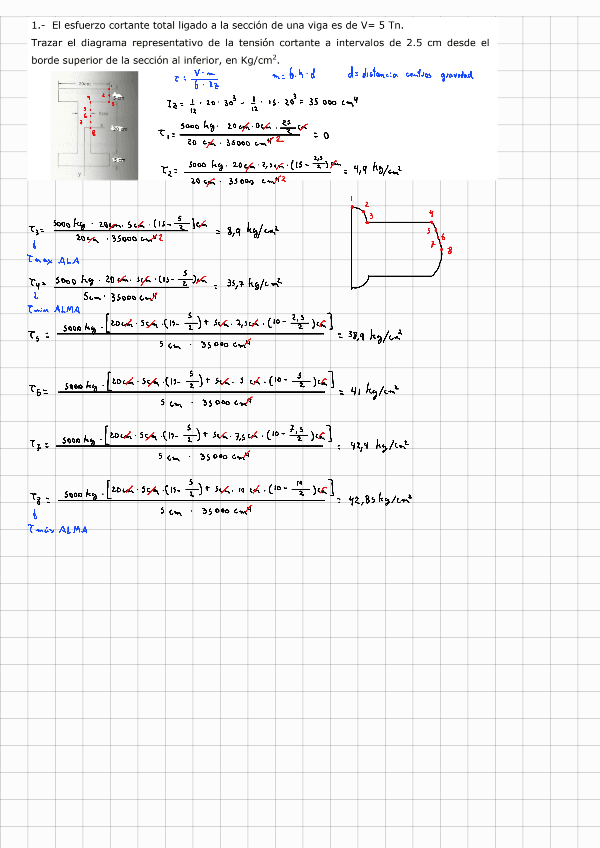 1.- El esfuerzo cortante total ligado a la sección de una viga es de V= 5 Tn.
Trazar el diagrama representativo de la tensión cortante a intervalos de 2.5 cm desde el
borde superior de la sección al inferior, en Kg/cm².
τ = V · m / b · Iz   m = b · h · d   d = distancia centros gravedad
20 cm
5 cm
Iz = 1/12 · 20 · 30³ - 1/12 · 15 · 20³ = 35 000 cm⁴
τ1 = 5000 kg · 20 cm · 0 cm · 25/2 cm / 20 cm · 35000 cm⁴2 = 0
τ2 = 5000 kg · 20 cm · 2,5 cm · (15 - 2,5/2) cm / 20 cm · 35000 cm⁴2 = 4,9 kg/cm²
τ3 = 5000 kg · 20 cm · 5 cm · (15 - 5/2) cm / 20 cm · 35000 cm⁴2 = 8,9 kg/cm²
τmax ALA
τ4 = 5000 kg · 20 cm · 5 cm · (15 - 5/2) cm / 5 cm · 35000 cm⁴ = 35,7 kg/cm²
τmin ALMA
τ5 = 5000 kg · [20 cm · 5 cm · (15 - 5/2) + 5 cm · 2,5 cm · (10 - 2,5/2) cm] / 5 cm · 35000 cm⁴ = 38,9 kg/cm²
τ6 = 5000 kg · [20 cm · 5 cm · (15 - 5/2) + 5 cm · 5 cm · (10 - 5/2) cm] / 5 cm · 35000 cm⁴ = 41 kg/cm²
τ7 = 5000 kg · [20 cm · 5 cm · (15 - 5/2) + 5 cm · 7,5 cm · (10 - 7,5/2) cm] / 5 cm · 35000 cm⁴ = 42,4 kg/cm²
τ8 = 5000 kg · [20 cm · 5 cm · (15 - 5/2) + 5 cm · 10 cm · (10 - 10/2) cm] / 5 cm · 35000 cm⁴ = 42,85 kg/cm²
τmáx ALMA
1
2
3
4
5
6
7
8